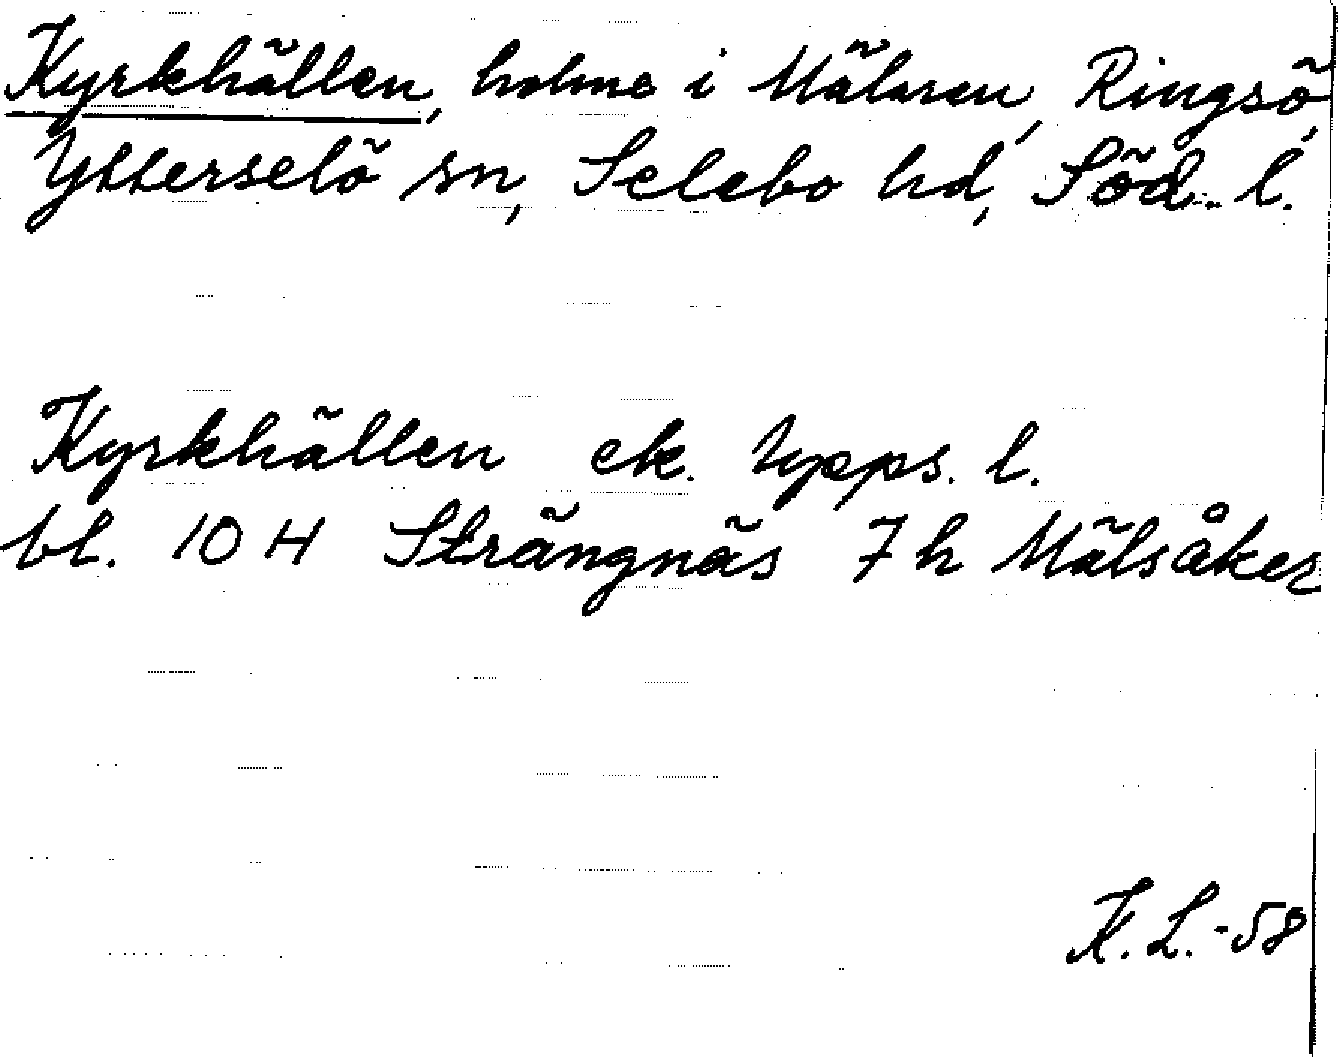 Kyrkhällen, holme i Mälaren, Ringsö,
Ytterselö sn, Selebo hd, Söd. l.
Kyrkhällen ek. upps. l.
bl. 10 H Strängnäs 7 h Mälsåker
K. L.-58